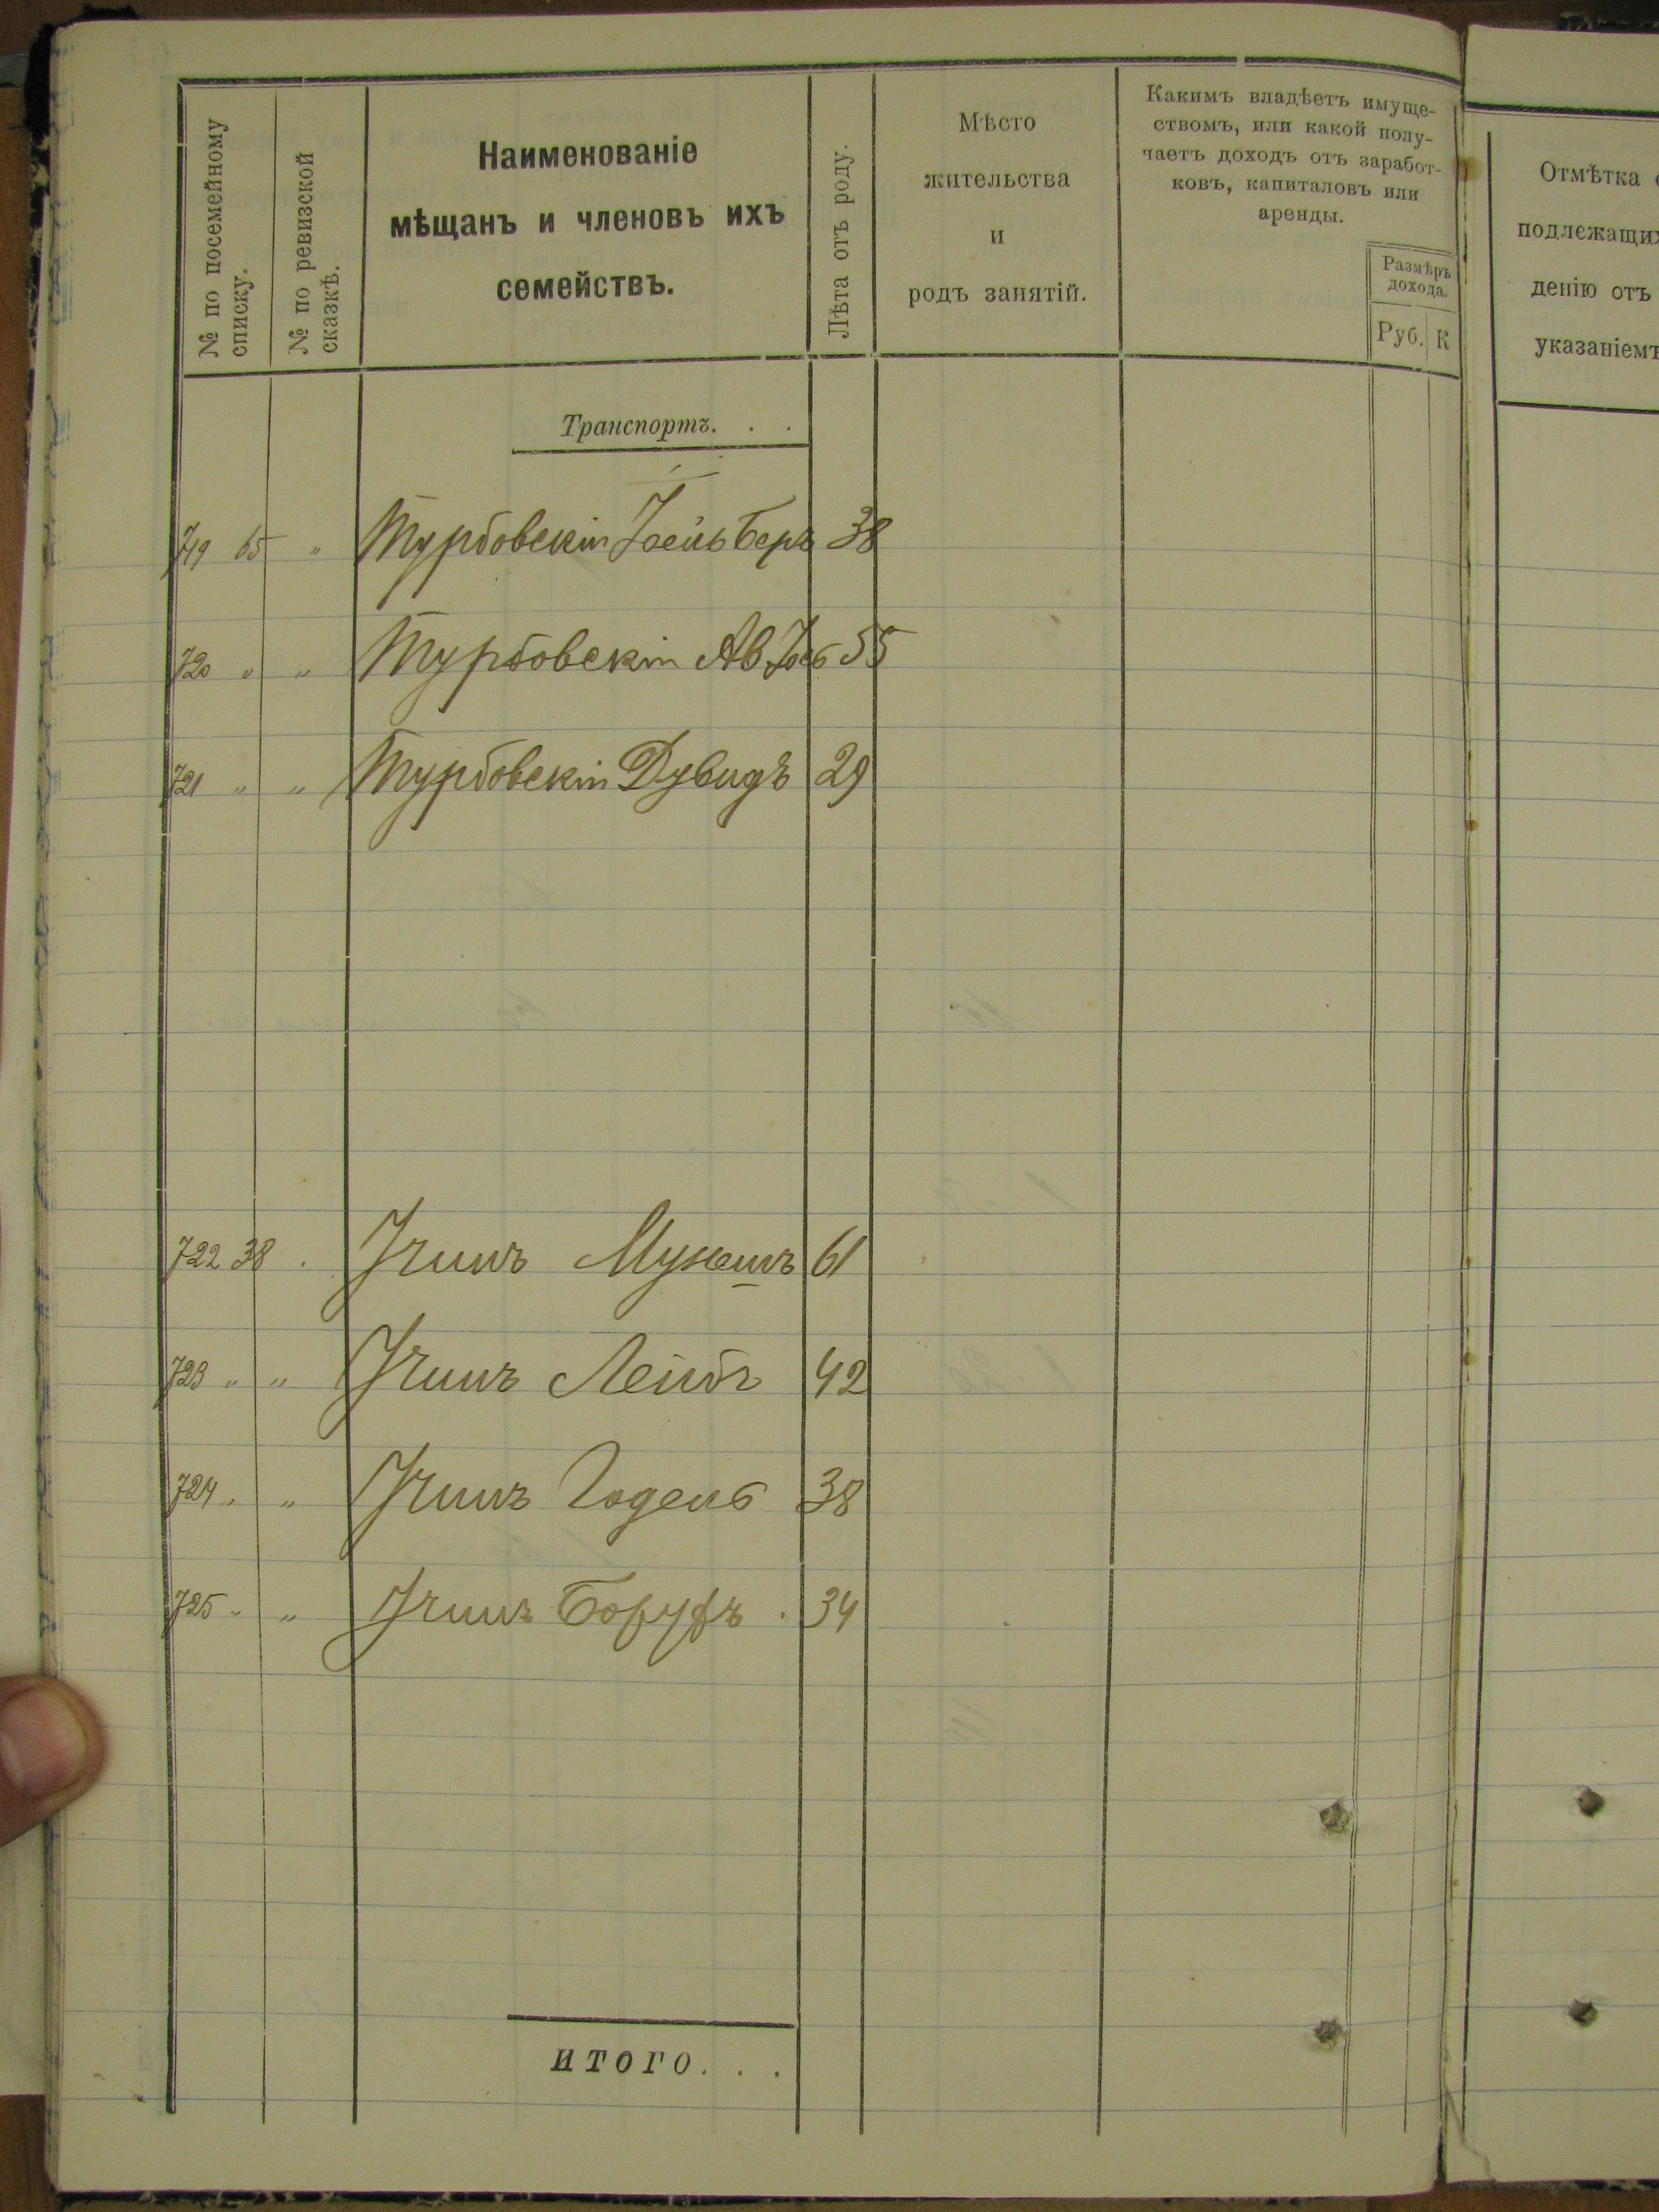 № по посемейному
списку.
№ по ревизской
сказкѣ.
Наименованіе
мѣщанъ и членовъ ихъ
семействъ.
Лѣта отъ роду.
Мѣсто
жительства
и
родъ занятій.
Какимъ владѣетъ имуще-
ствомъ, или какой полу-
чаетъ доходъ отъ заработ-
ковъ, капиталовъ или
аренды.
Размѣръ
дохода.
Руб. К
Отмѣтка
подлежащих
денію отъ
указаніемъ
Транспортъ. . .
719 65 " Турбовскій Беръ 38
720 " " Турбовскій Ав 55
721 " " Турбовскій Дувидъ 29
722 38 . 61
723 " " Лейбъ 42
724 " " Годель 38
725 " " Борухъ . 34
ИТОГО. . .